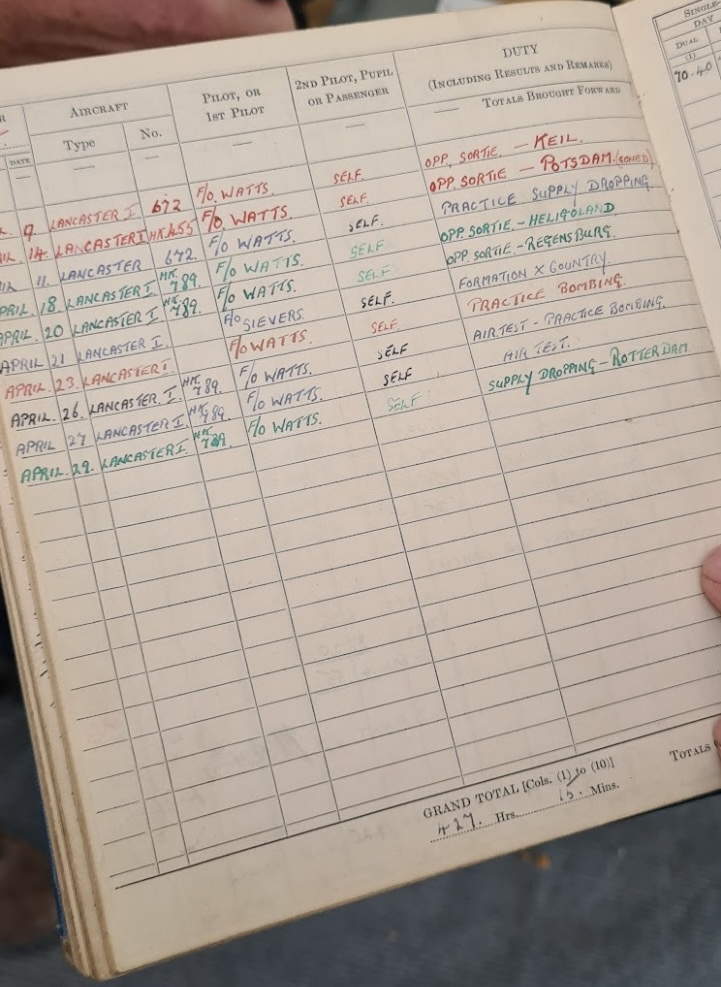 SINGLE-
DAY
DUAL
(1)
70.40
R
DATE
AIRCRAFT
Type
No.
PILOT, OR
1ST PILOT
2ND PILOT, PUPIL
OR PASSENGER
DUTY
(INCLUDING RESULTS AND REMARKS)
— — — — TOTALS BROUGHT FORWARD
9. LANCASTER I 672 F/O. WATTS. SELF. OPP. SORTIE. — KEIL.
14. LANCASTER I HK455 F/O. WATTS. SELF. OPP. SORTIE — POTSDAM.
11. LANCASTER 672. F/O WATTS. SELF. PRACTICE SUPPLY DROPPING.
APRIL 18. LANCASTER I. HK 789. F/O WATTS. SELF OPP. SORTIE. - HELIGOLAND
APRIL 20 LANCASTER I HK 789. F/O WATTS. SELF OPP. SORTIE. - REGENSBURG.
APRIL 21 LANCASTER I. F/O SIEVERS. SELF. FORMATION X COUNTRY.
APRIL. 23. LANCASTER I. F/O WATTS. SELF. PRACTICE BOMBING.
APRIL. 26. LANCASTER. I. HK 789. F/O WATTS. SELF AIR TEST - PRACTICE BOMBING.
APRIL 27 LANCASTER I. HK 789. F/O WATTS. SELF AIR TEST.
APRIL. 29. LANCASTER I. HK 789. F/O WATTS. SELF SUPPLY DROPPING - ROTTERDAM
GRAND TOTAL [Cols. (1) to (10)]
427. Hrs. 15. Mins.
TOTALS